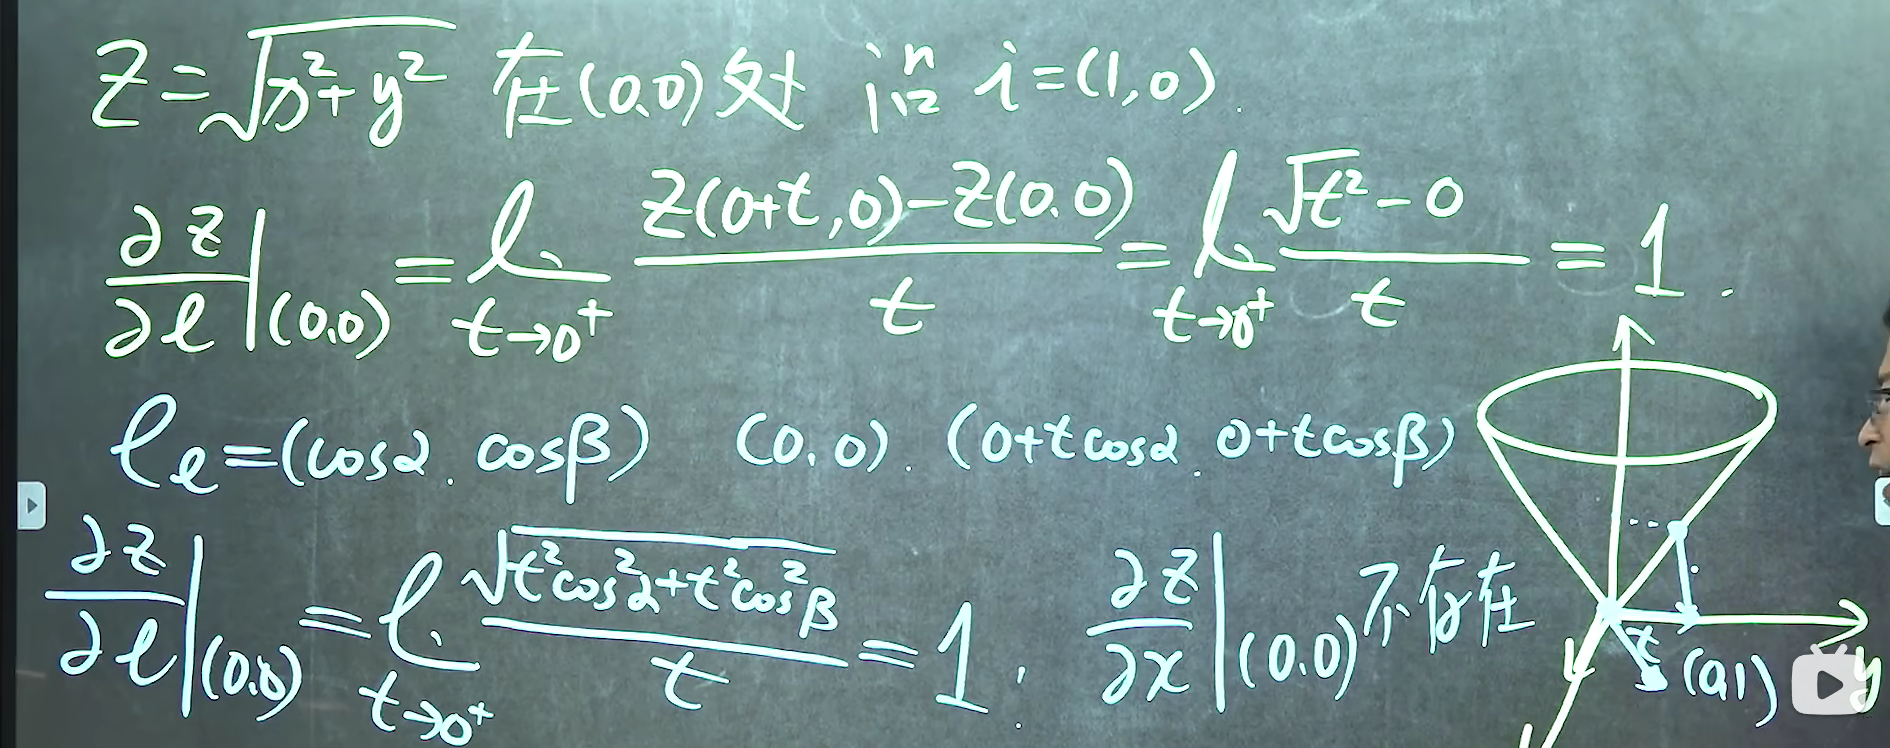 z=√(x²+y²) 在(0,0)处 沿 i=(1,0).
∂z/∂l|(0,0) = lim t→0⁺ (z(0+t,0)-z(0,0))/t = lim t→0⁺ (√t²-0)/t = 1.
eₗ=(cosα, cosβ) (0,0). (0+tcosα, 0+tcosβ)
∂z/∂l|(0,0) = lim t→0⁺ √(t²cos²α+t²cos²β)/t = 1. ∂z/∂x|(0,0) 不存在
t (0,1) y